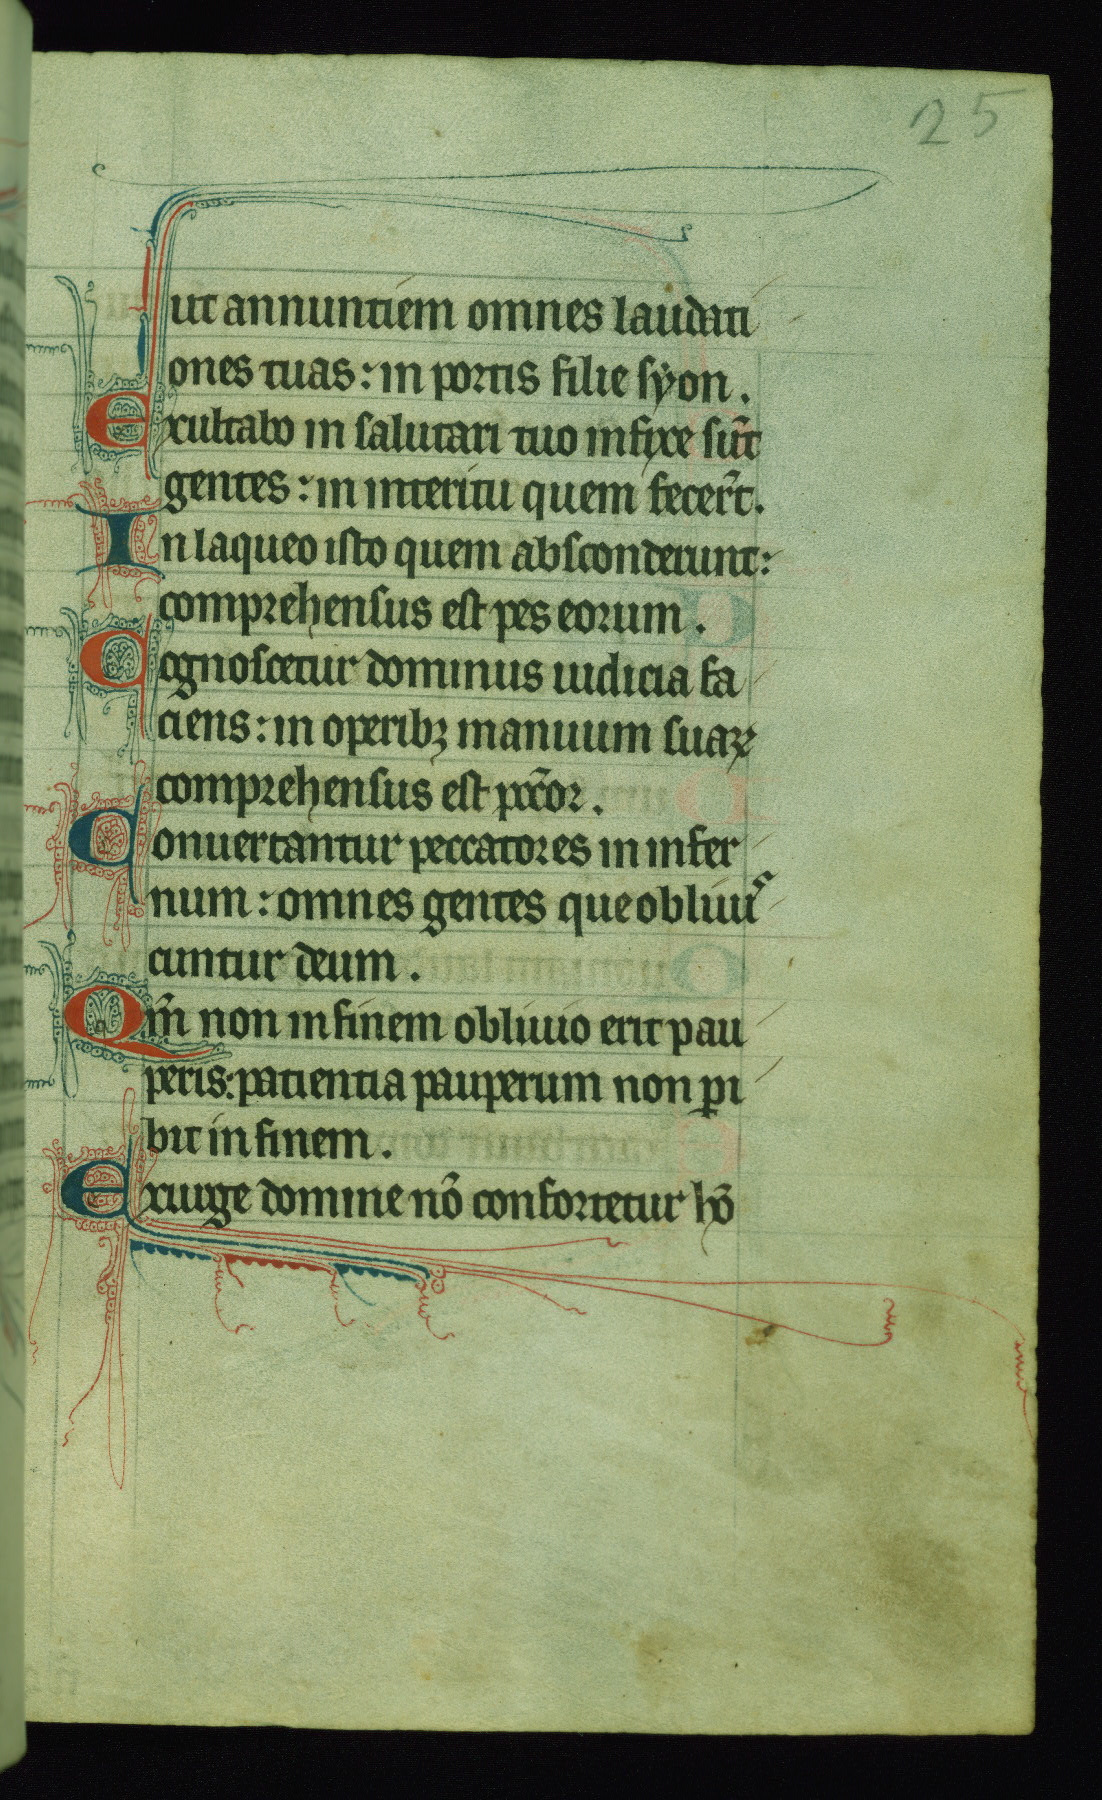 25
ut annuntiem omnes laudati
ones tuas : in portis filie syon .
Exultabo in salutari tuo infixe sūt
gentes : in interitu quem fecer̄t .
In laqueo isto quem absconderunt :
comprehensus est pes eorum .
Cognoscetur dominus iudicia fa
ciens : in operibꝫ manuum suaꝝ
comprehensus est pc̄cor .
Conuertantur peccatores in infer
num : omnes gentes que obliuis
cuntur deum .
Qm̄ non in finem obliuio erit pau
peris : patientia pauperum non ꝑi
bit in finem .
Exurge domine nō confortetur hō